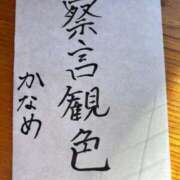 察言観色
かなめ